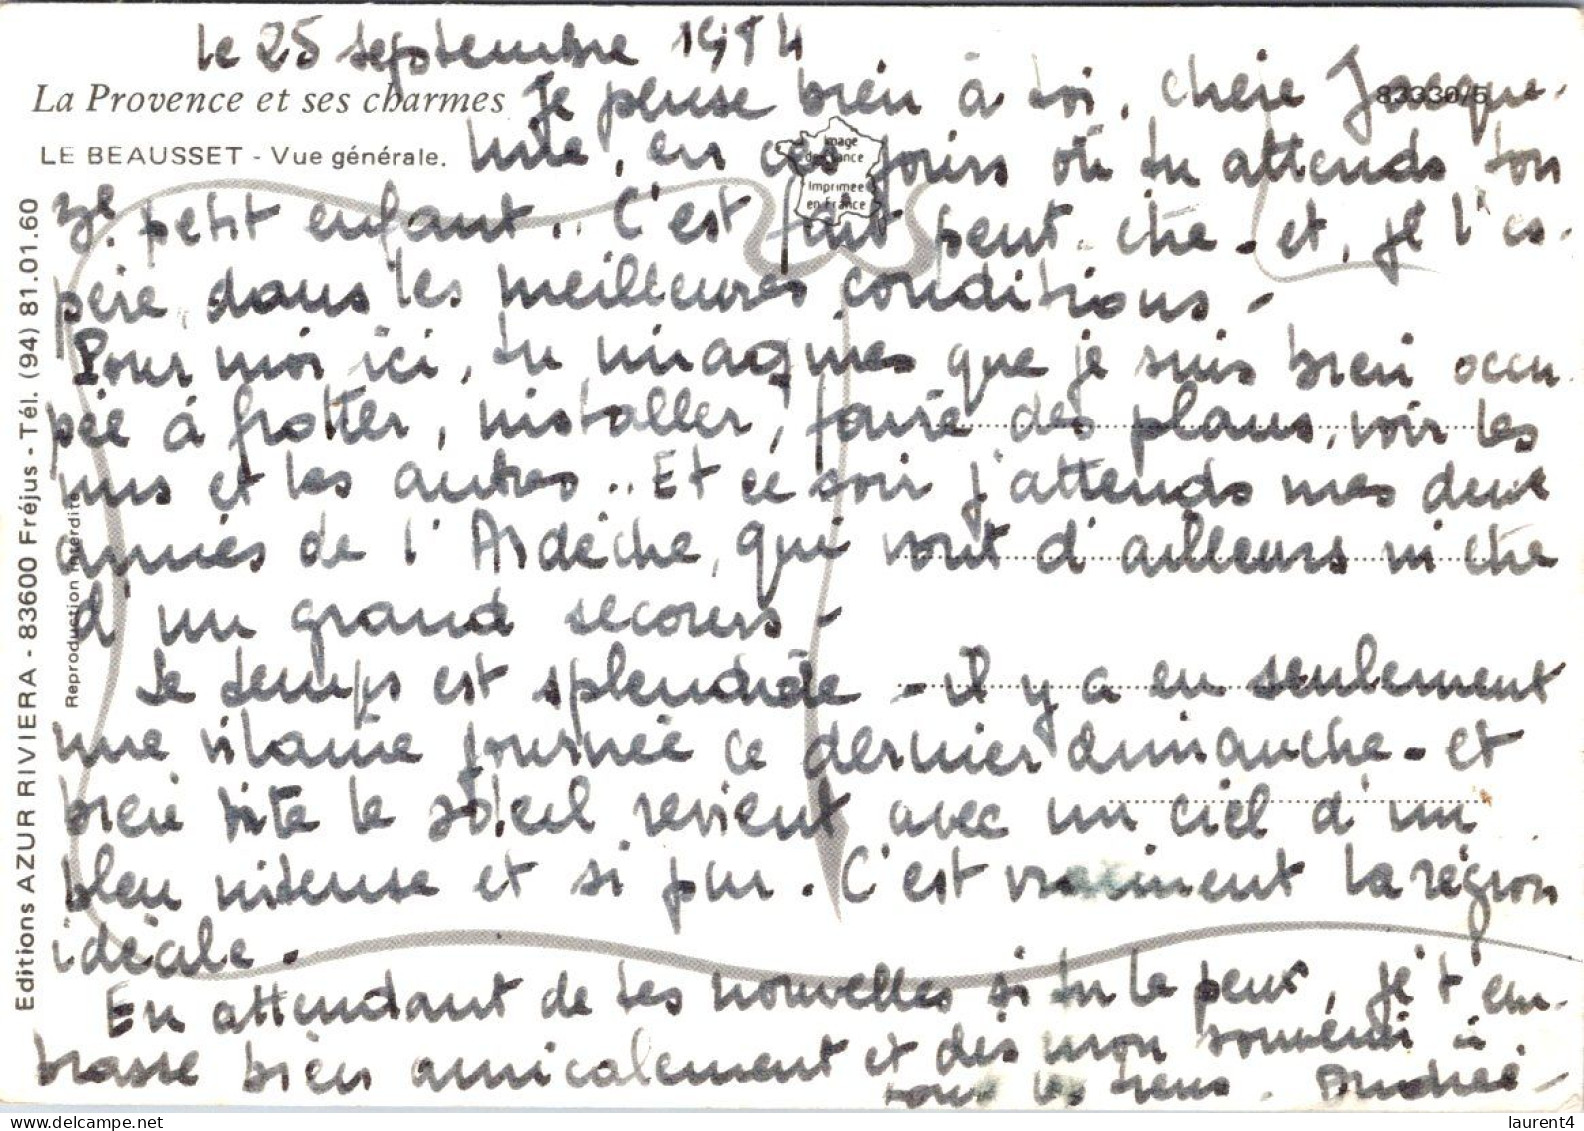 le 25 septembre 1984
La Provence et ses charmes
Je pense bien à toi, chère Jacque-
83330/5
LE BEAUSSET - Vue générale.
line, en ces jours où tu attends ton
Image
de France
Imprimée
en France
3e petit enfant.. C'est fait peut-être - et, je l'es-
père dans les meilleures conditions -
Pour moi ici, tu imagines que je suis bien occu-
pée à frotter, installer, faire des plans, voir les
uns et les autres .. Et ce soir j'attends mes deux
amies de l'Ardèche, qui vont d'ailleurs m'être
d'un grand secours -
Le temps est splendide - il y a eu seulement
une vilaine journée ce dernier dimanche - et
bien vite le soleil revient avec un ciel d'un
bleu intense et si pur. C'est vraiment la région
idéale -
En attendant de tes nouvelles si tu le peux, je t'em-
brasse bien amicalement et dis mon souvenir à
tous les tiens. Andrée -
Editions AZUR RIVIERA - 83600 Fréjus - Tél. (94) 81.01.60
Reproduction interdite
laurent4